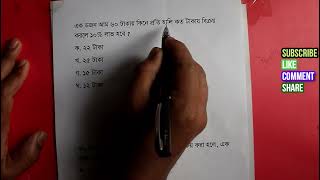 এক ডজন আম ৬০ টাকায় কিনে প্রতি হালি কত টাকায় বিক্রয়
করলে ১০% লাভ হবে ?
ক. ২২ টাকা
খ. ২৫ টাকা
গ. ১৫ টাকা
ঘ. ১২ টাকা
করা হলো, এক
SUBSCRIBE
LIKE
COMMENT
SHARE